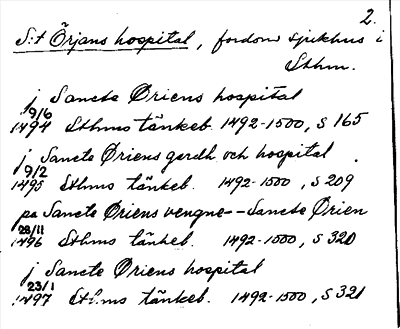 2.
S:t Örjans hospital, fordom sjukhus i
Sthm.
j Sancte Øriens hospital
9/6
1494 Sthms tänkeb. 1492-1500, s 165
j Sancte Øriens gerdh och hospital.
9/2
1495 Sthms tänkeb. 1492-1500, s 209
pa Sancte Øriens vengne--Sancte Ørien
28/11
1496 Sthms tänkeb. 1492-1500, s 320
j Sancte Øriens hospital
23/1
1497 Sthms tänkeb. 1492-1500, s 321